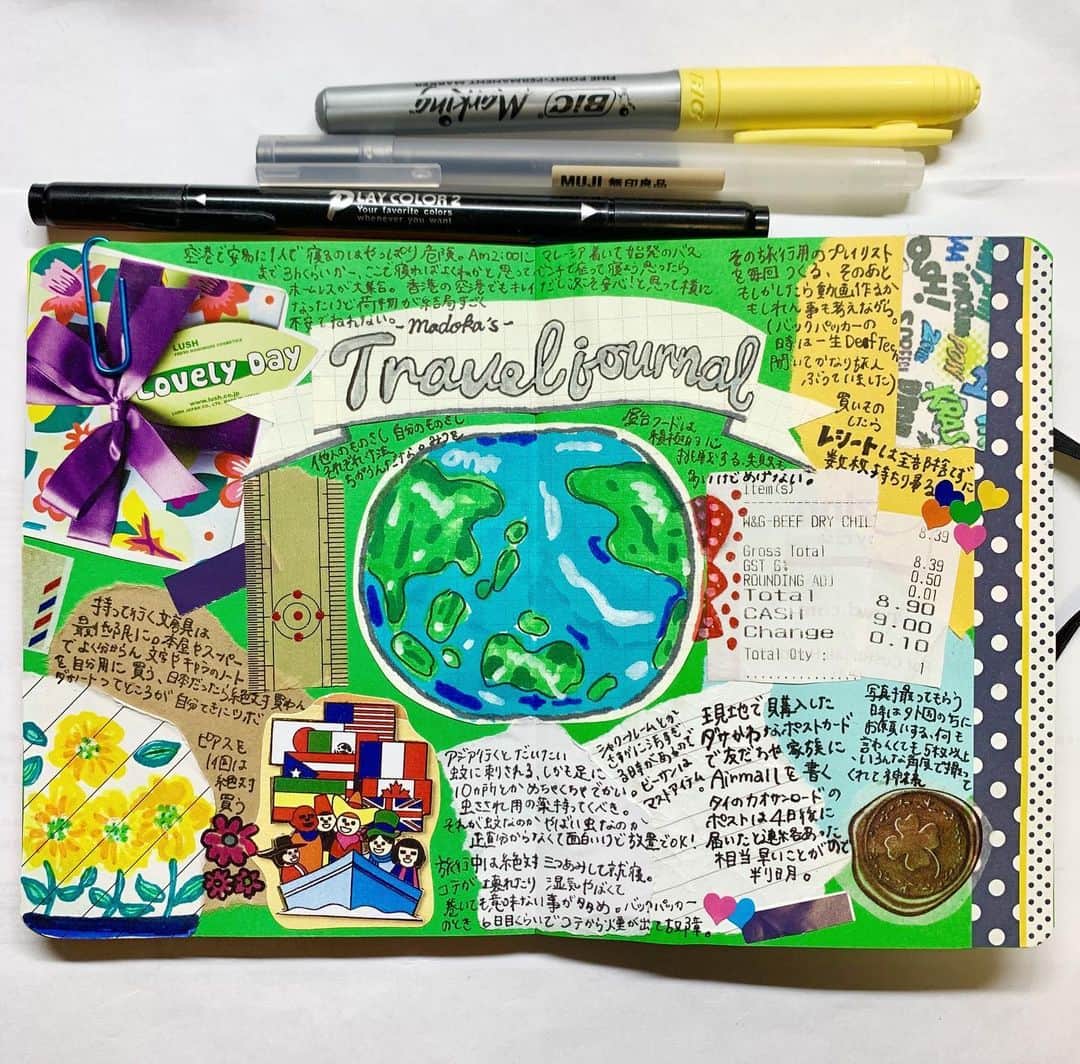 BIC
FINE POINT·PERMANENT MARKER
BIC Marking
MUJI 無印良品
PLAY COLOR 2
Your favorite colors
whenever you want
空港で安易に1人で寝るのはやっぱり危険。Am2:00に
まで3hくらいか〜、ここで寝ればよくねと思って
ホームレスが大集合。香港の空港でもキレイ
なったけど荷物が結局すごく
不安でねれない。
マレーシア着いて始発のバス
ベンチで座って寝ようと思ったら
だし次こそ安心!と思って横に
その旅行用のプレイリスト
を毎回つくる、そのあと
もしかしたら動画作るか
もしれん事も考えながら。
(バックパッカーの
時は一生Deaf Tech
聞いてかなり旅人
ぶっていました)
-Madoka's-
Travel journal
LUSH
FRESH HANDMADE COSMETICS
Lovely Day
www.lush.co.jp
OSH!
KRAS
他人のものさし 自分のものさし
それぞれ寸法
ちがうんだから。みつを
屋台フードは
積極的に
挑戦する、失敗も
多いけどめげない。
買いもの
したら
レシートは全部捨てずに
数枚持ち帰る
Item(s)
W&G-BEEF DRY CHIL
8.39
Gross Total 8.39
GST 6% 0.50
ROUNDING ADJ 0.01
Total 8.90
CASH 9.00
Change 0.10
Total Qty : 1
持って行く文房具は
最低限にの本屋やスーパー
でよく分からん文字やキャラのノート
を自分用に買う、日本だったら絶対買わん
ダサいってところが自分てきにツボ
ピアスも
1個は
絶対
買う
アジア行くとだいたい
蚊に刺される、しかも足に
10カ所とかめちゃくちゃでかい。
虫さされ用の薬持ってくべき。
それが蚊なのかやばい虫なのか
正直分からなくて面白いけど放置でOK!
旅行中は絶対三つあみして就寝。
コテが壊れたり湿気やばくて
巻いても意味ない事が多め。バックパッカー
のとき6日目くらいでコテから煙が出て故障。
シャワールームとか
さすがに汚すぎ
る時があるんで
ビーサンは
マストアイテム。
現地で購入した
ダサかわなポストカード
で友だちや家族に
Airmailを書く
タイのカオサンロードの
ポストは4日後に
届いたと連絡あったので
相当早いことが
判明。
写真撮ってもらう
時は外国の方に
お願いする、何も
言わなくても5枚以上
いろんな角度で撮って
くれて神様